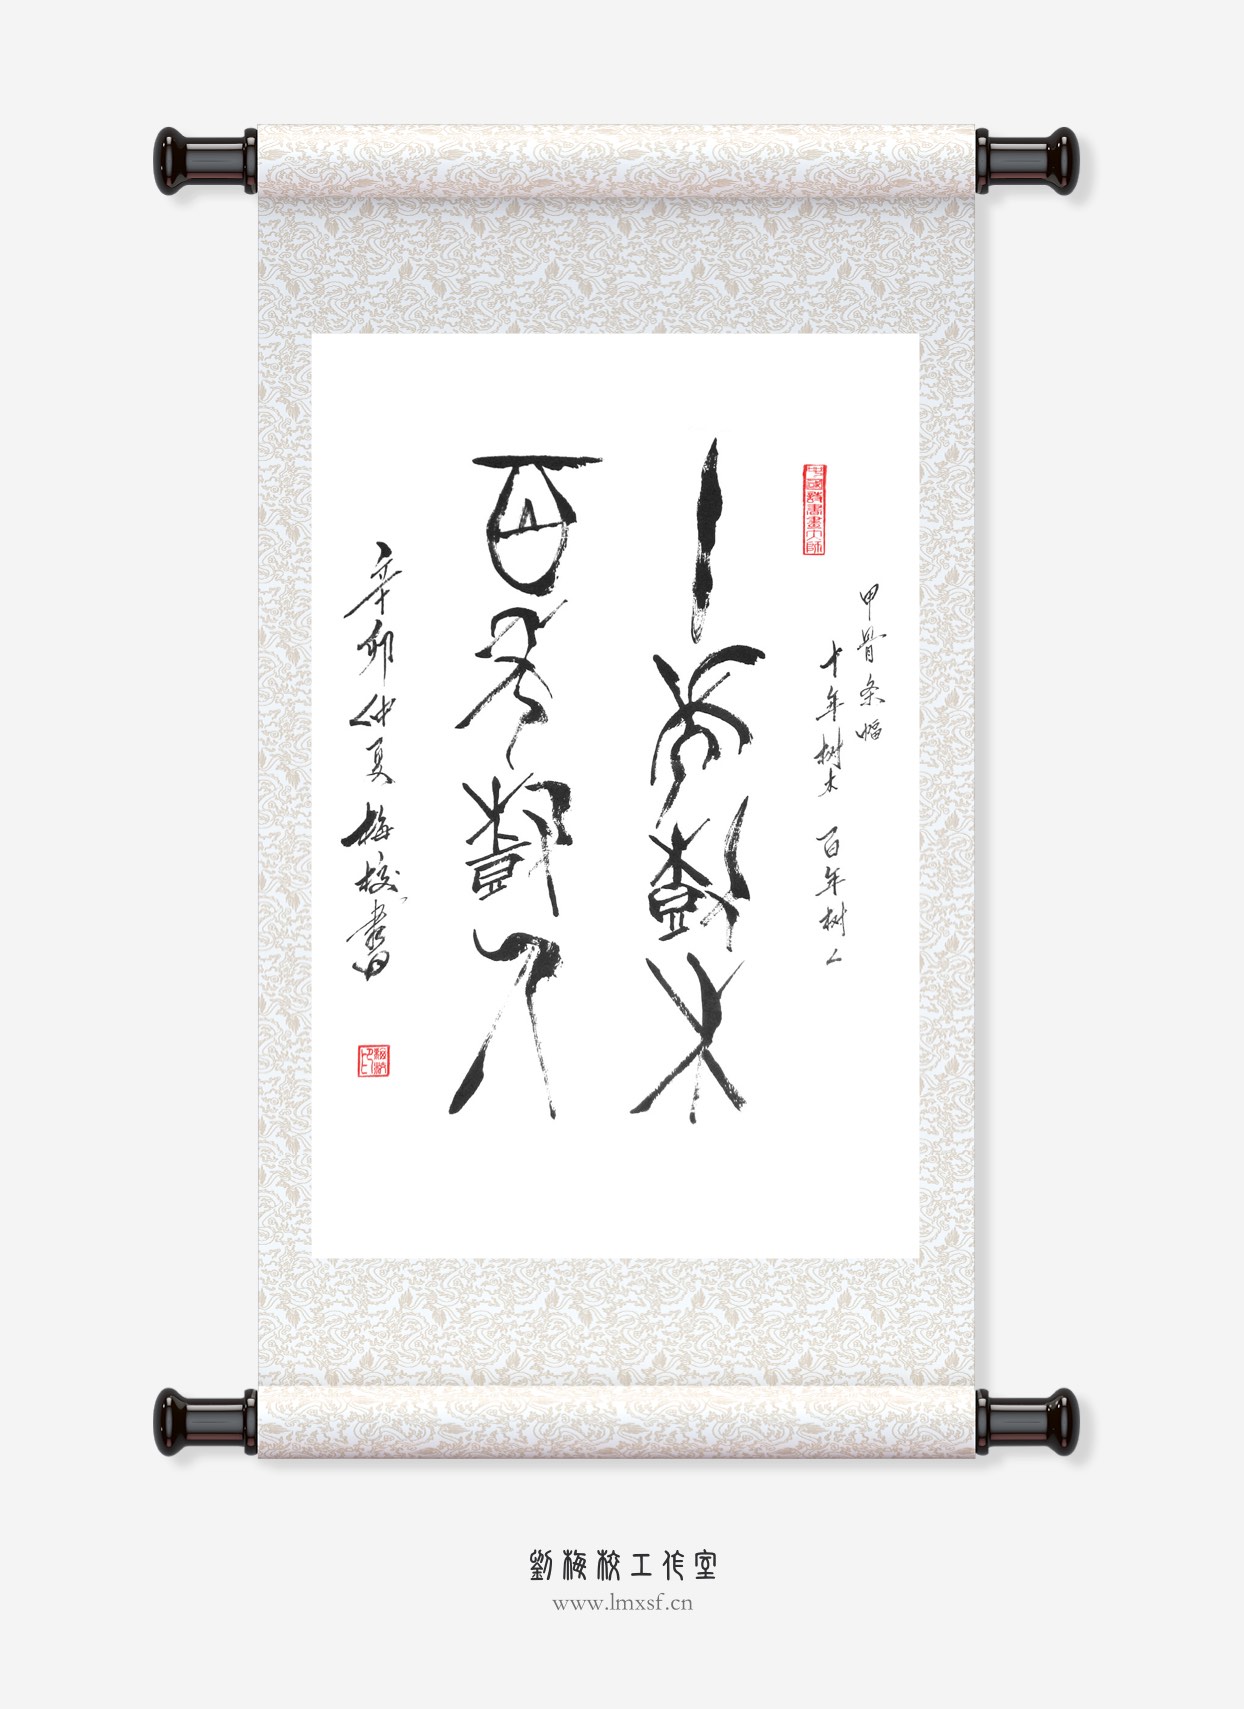 中國詩書畫大師
甲骨条幅
十年树木 百年树人
十年樹木
百年樹人
辛卯仲夏梅校書
梅校印
劉梅校工作室
www.lmxsf.cn